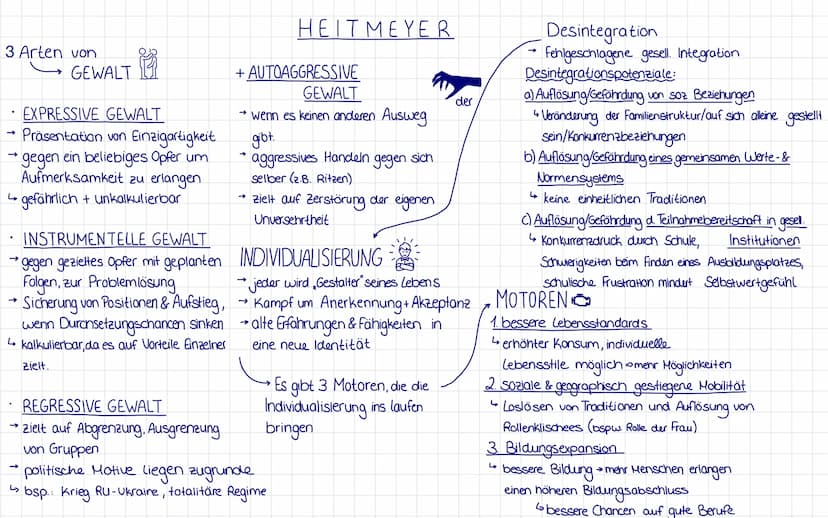 HEITMEYER
3 Arten von
GEWALT
· EXPRESSIVE GEWALT
→ Präsentation von Einzigartigkeit
→ gegen ein beliebiges Opfer um
Aufmerksamkeit zu erlangen
↳ gefährlich + unkalkulierbar
· INSTRUMENTELLE GEWALT
→ gegen gezieltes Opfer mit geplanten
Folgen, zur Problemlösung
→ Sicherung von Positionen & Aufstieg,
wenn Durchsetzungschancen sinken
↳ kalkulierbar, da es auf Vorteile Einzelner
zielt.
· REGRESSIVE GEWALT
→ zielt auf Abgrenzung, Ausgrenzung
von Gruppen
→ politische Motive liegen zugrunde
↳ bsp.: Krieg RU-Ukraine, totalitäre Regime
+ AUTOAGGRESSIVE
GEWALT
→ wenn es keinen anderen Ausweg
gibt.
→ aggressives Handeln gegen sich
selber (z.B. Ritzen)
→ zielt auf Zerstörung der eigenen
Unversehrtheit
der
INDIVIDUALISIERUNG
→ jeder wird „Gestalter" seines Lebens
→ Kampf um Anerkennung + Akzeptanz
→ alte Erfahrungen & Fähigkeiten in
eine neue Identität
→ Es gibt 3 Motoren, die die
Individualisierung ins laufen
bringen
Desintegration
→ Fehlgeschlagene gesell. Integration
Desintegrationspotenziale:
a) Auflösung/Gefährdung von soz Beziehungen
↳ Veränderung der Familienstruktur/auf sich alleine gestellt
sein/Konkurrenzbeziehungen
b) Auflösung/Gefährdung eines gemeinsamen Werte- &
Normensystems
↳ keine einheitlichen Traditionen
c) Auflösung/Gefährdung d. Teilnahmebereitschaft in gesell.
Institutionen
↳ Konkurrenzdruck durch Schule,
Schwierigkeiten beim Finden eines Ausbildungsplatzes,
schulische Frustration mindert Selbstwertgefühl
MOTOREN
1. bessere Lebensstandards
↳ erhöhter Konsum, individuelle
Lebensstile möglich → mehr Möglichkeiten
2. soziale & geographisch gestiegene Mobilität
↳ Loslösen von Traditionen und Auflösung von
Rollenklischees (bspw. Rolle der Frau)
3. Bildungsexpansion
↳ bessere Bildung → mehr Menschen erlangen
einen höheren Bildungsabschluss
↳ bessere Chancen auf gute Berufe